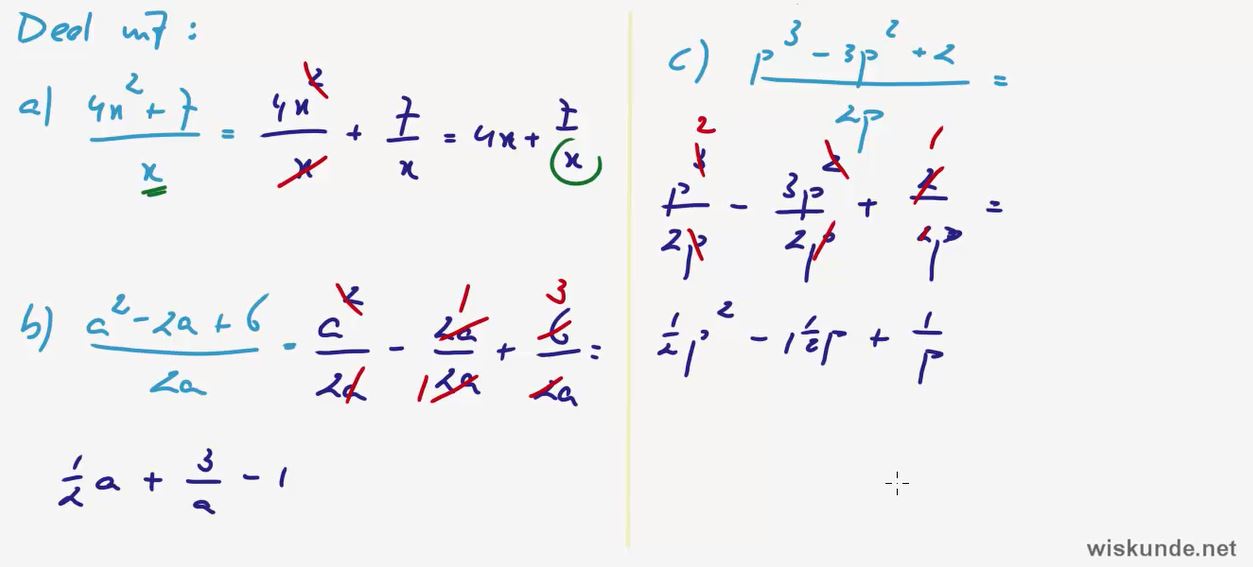 Deel uit :
a) (4x² + 7)/x = 4x²/x + 7/x = 4x + 7/x
b) (a² - 2a + 6)/2a = a²/2a - 2a/2a + 6/2a =
1/2 a + 3/a - 1
c) (p³ - 3p² + 2)/2p =
p³/2p - 3p²/2p + 2/2p =
1/2 p² - 1 1/2 p + 1/p
wiskunde.net